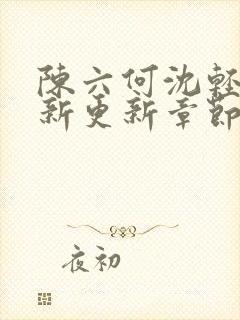 陳六何沈輕
新更新章節
夜初